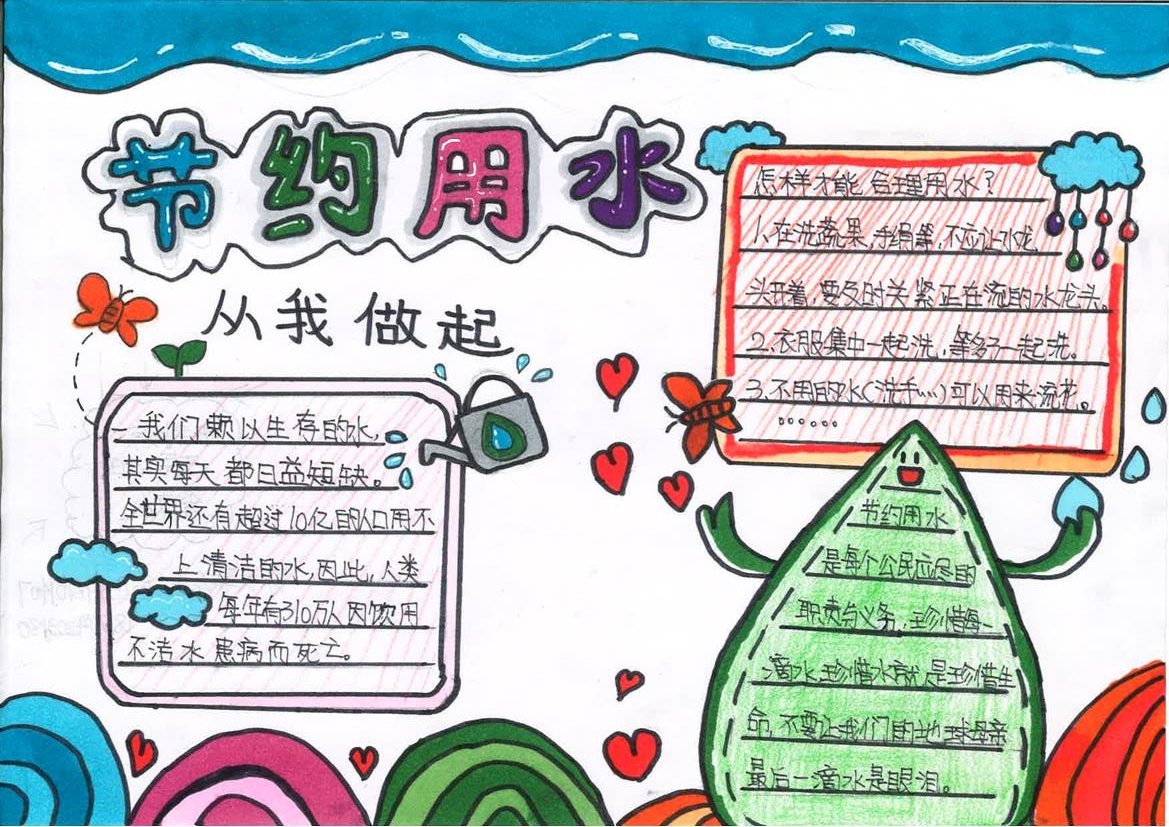 节约用水
从我做起
我们赖以生存的水,
其实每天都日益短缺。
全世界还有超过10亿的人口用不
上清洁的水,因此,人类
每年有310万人因饮用
不洁水患病而死亡。
怎样才能合理用水?
1、在洗蔬果,手绢等,不应让水龙
头开着,要及时关紧正在流的水龙头。
2、衣服集中一起洗,等多了一起洗。
3、不用的水(洗手……)可以用来浇花。
……
节约用水
是每个公民应尽的
职责与义务,珍惜每一
滴水,珍惜水就是珍惜生
命,不要让我们的地球母亲
最后一滴水是眼泪。